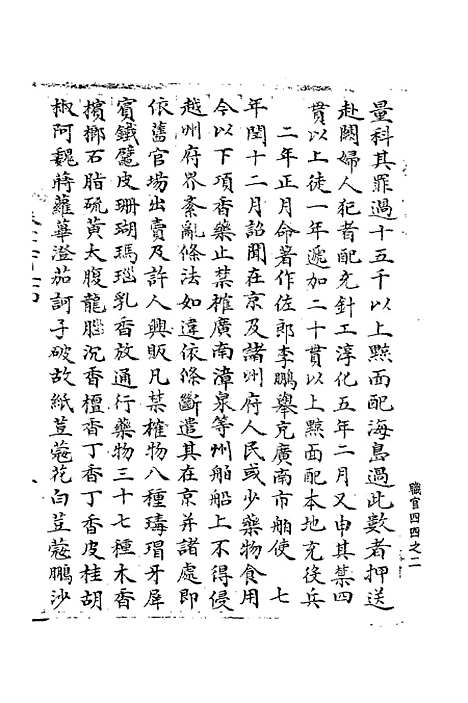 職官四四之二
量科其罪過十五千以上黥面配海島過此數者押送
赴闕婦人犯者配充針工淳化五年二月又申其禁四
貫以上徒一年遞加二十貫以上黥面配本地充役兵
二年正月命著作佐郎李鵬舉充廣南市舶使 七
年閏十二月詔聞在京及諸州府人民或少藥物食用
令以下項香藥止禁榷廣南漳泉等州舶船上不得侵
越州府界紊亂條法如違依條斷遣其在京并諸處即
依舊官場出賣及許人興販凡禁榷物八種瑇瑁牙犀
賓鐵鼊皮珊瑚瑪瑙乳香放通行藥物三十七種木香
檳榔石脂硫黃大腹龍腦沉香檀香丁香丁香皮桂胡
椒阿魏蒔蘿蓽澄茄訶子破故紙荳蔻花白荳蔻鵬沙